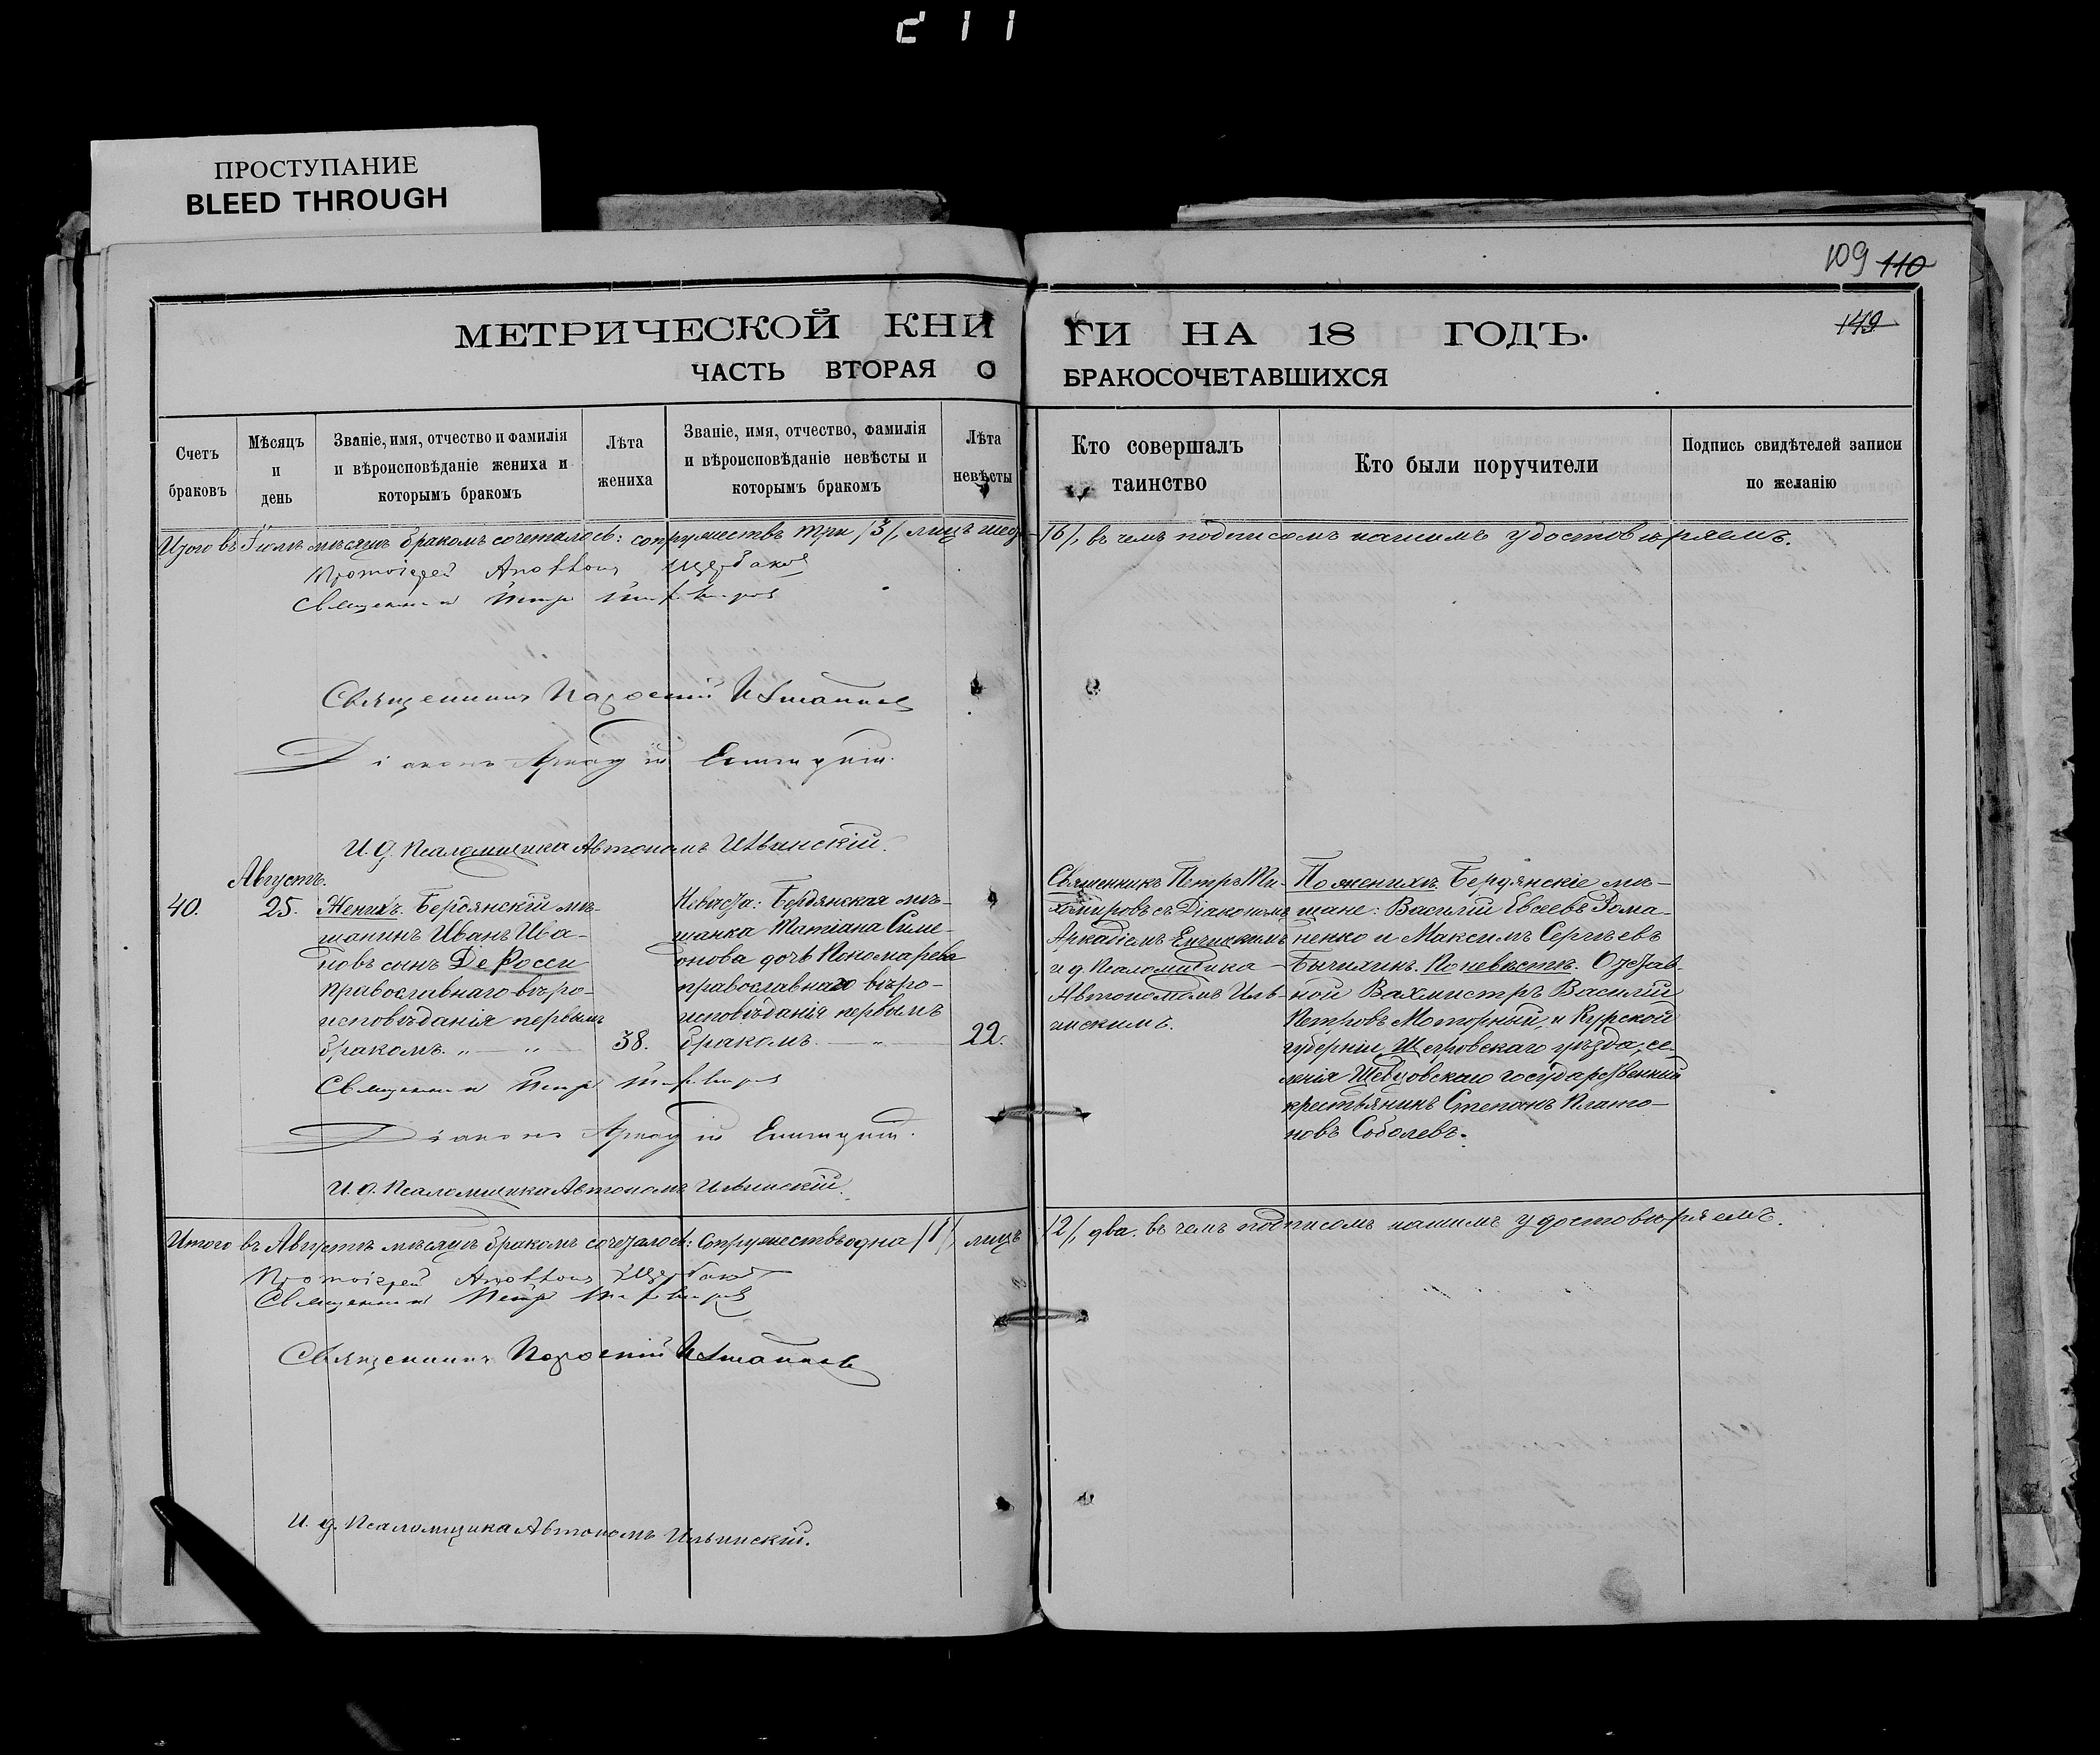 211
ПРОСТУПАНИЕ
BLEED THROUGH
109 110
149
МЕТРИЧЕСКОЙ КНИГИ НА 18 ГОДЪ.
ЧАСТЬ ВТОРАЯ О БРАКОСОЧЕТАВШИХСЯ
Счетъ
браковъ
Мѣсяцъ
и
день
Званіе, имя, отчество и фамилія
и вѣроисповѣданіе жениха и
которымъ бракомъ
Лѣта
жениха
Званіе, имя, отчество, фамилія
и вѣроисповѣданіе невѣсты и
которымъ бракомъ
Лѣта
невѣсты
Кто совершалъ
таинство
Кто были поручители
Подпись свидѣтелей записи
по желанію
Итого въ Іюлѣ мѣсяцѣ бракомъ сочеталось: супружествъ три /3/, лицъ шест /6/, въ чемъ подписомъ нашимъ удостовѣряемъ.
Протоіерей Щербаковъ
Священникъ Петръ Тихомировъ
Священникъ
Діаконъ Аркадій
И. д. Псаломщика Автономъ Ильинскій.
Августъ.
40.
25.
Женихъ: Бердянскій мѣ-
щанинъ Иванъ Ива-
новъ сынъ Де Росси
православнаго вѣро-
исповѣданія первымъ
бракомъ. „ — „ —
38.
Невѣста: Бердянская мѣ-
щанка Татіана Симе-
онова дочь Пономарева
православнаго вѣро-
исповѣданія первымъ
бракомъ. — „ —
22.
Священникъ Петръ Ти-
хомировъ съ Діакономъ
Аркадіемъ
и д. Псаломщика
Автономомъ Иль-
инскимъ.
По женихѣ: Бердянскіе мѣ-
щане: Василій Евсеевъ Рома-
ненко и Максимъ Сергѣевъ
Бычихинъ. По невѣстѣ: Отстав-
ной Вахмистръ Василій
Петровъ Моторный, и Курской
губерніи, Щегровскаго уѣзда, се-
ленія Шевцовскаго государственный
крестьянинъ Степанъ Плато-
новъ Соболевъ.
Священникъ Петръ Тихомировъ
Діаконъ Аркадій
И. д. Псаломщика Автономъ Ильинскій.
Итого въ Августѣ мѣсяцѣ бракомъ сочеталось: супружествъ одна /1/, лицъ /2/, два. въ чемъ подписомъ нашимъ удостовѣряемъ.
Протоіерей Щербаковъ
Священникъ Петръ Тихомировъ
Священникъ
И. д. Псаломщика Автономъ Ильинскій.